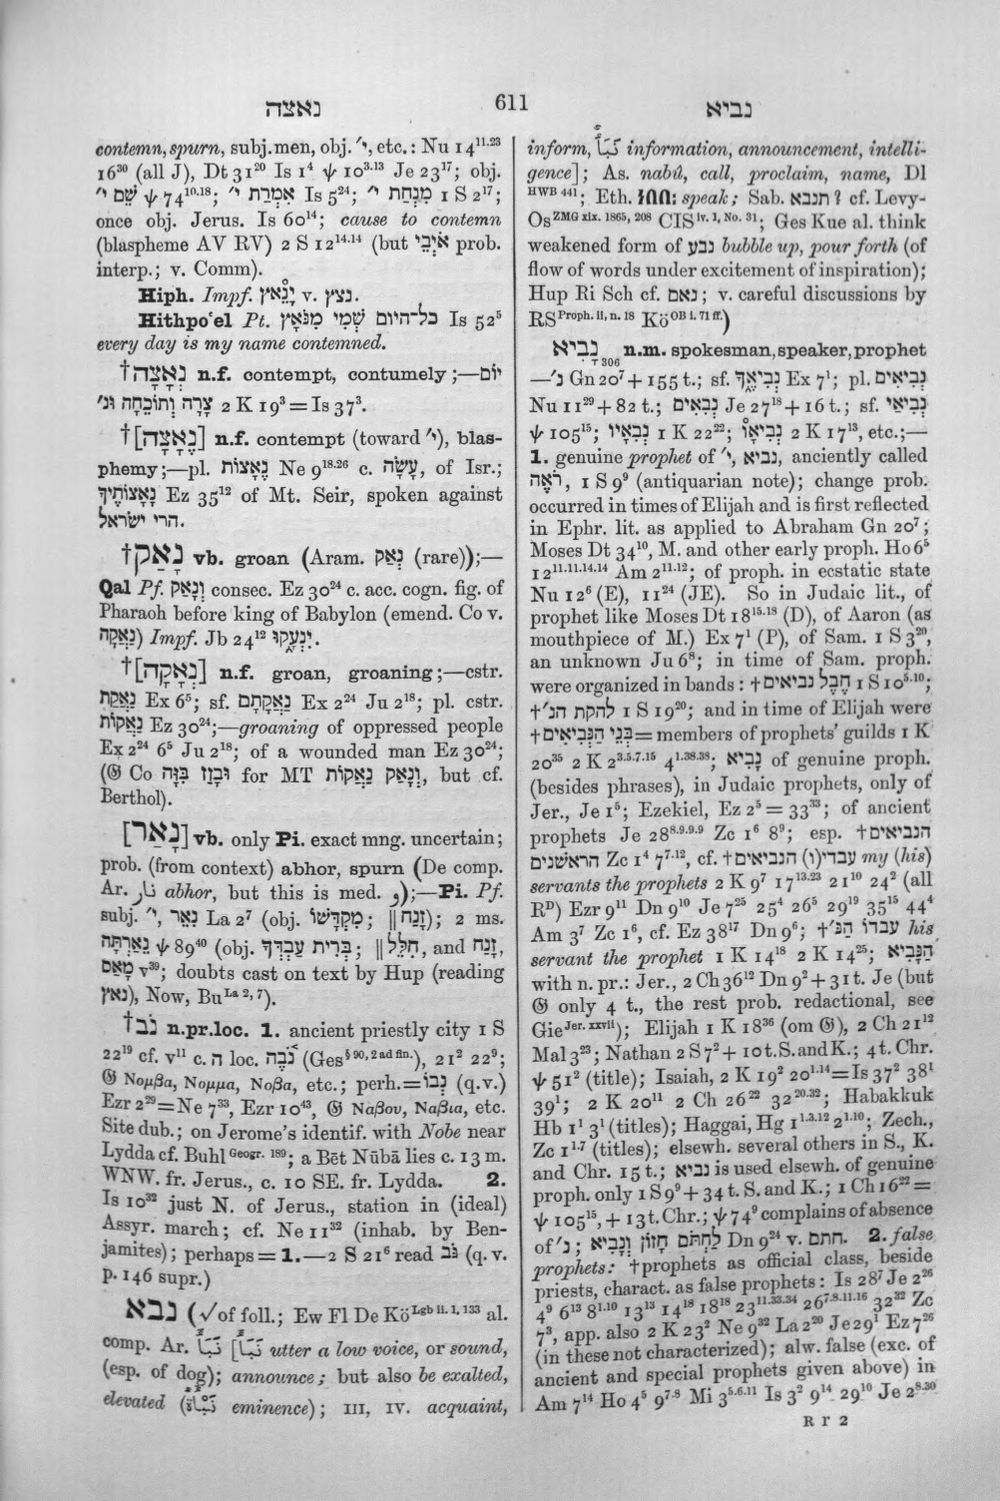 נאצה
611
נביא
contemn, spurn, subj. men, obj. ׳י, etc.: Nu 14 11.23
16 30 (all J), Dt 31 20 Is 1 4 ψ 10 3.13 Je 23 17; obj.
שֵׁם י׳ ψ 74 10.18; אִמְרַת י׳ Is 5 24; מִנְחַת י׳ 1 S 2 17;
once obj. Jerus. Is 60 14; cause to contemn
(blaspheme AV RV) 2 S 12 14.14 (but אֹיְבֵי prob.
interp.; v. Comm).
Hiph. Impf. יָנֵאץ v. נצץ.
Hithpo‘el Pt. כל־היום שְׁמִי מִנֹּאָץ Is 52 5
every day is my name contemned.
†נְאָצָה n.f. contempt, contumely;—יוֹם
צָרָה וְתוֹכֵחָה וּנ׳ 2 K 19 3 = Is 37 3.
†[נֶאָצָה] n.f. contempt (toward ׳י), blas-
phemy;—pl. נֶאָצוֹת Ne 9 18.26 c. עָשָׂה, of Isr.;
נָאָצוֹתֶיךָ Ez 35 12 of Mt. Seir, spoken against
הרי ישראל.
†נָאַק vb. groan (Aram. נְאַק (rare));—
Qal Pf. וְנָאַק consec. Ez 30 24 c. acc. cogn. fig. of
Pharaoh before king of Babylon (emend. Co v.
נְאָקָה) Impf. Jb 24 12 יִנְעָקוּ.
†[נְאָקָה] n.f. groan, groaning;—cstr.
נַאֲקַת Ex 6 5; sf. נַאֲקָתָם Ex 2 24 Ju 2 18; pl. cstr.
נַאֲקוֹת Ez 30 24;—groaning of oppressed people
Ex 2 24 6 5 Ju 2 18; of a wounded man Ez 30 24;
(𝔊 Co וּבָזַז בִּזָּה for MT וְנָאַק נַאֲקוֹת, but cf.
Berthol).
[נָאַר] vb. only Pi. exact mng. uncertain;
prob. (from context) abhor, spurn (De comp.
Ar. نار abhor, but this is med. و);—Pi. Pf.
subj. ׳י, נִאֵר La 2 7 (obj. מִקְדָּשׁוֹ; ‖ זָנַח); 2 ms.
נֵאַרְתָּה ψ 89 40 (obj. בְּרִית עַבְדֶּךָ; ‖ חִלֵּל, and זָנַח,
מָאַס v 39; doubts cast on text by Hup (reading
נאץ), Now, Bu La 2, 7).
†נֹב n.pr.loc. 1. ancient priestly city 1 S
22 19 cf. v 11 c. ה loc. נֹבֶה (Ges § 90, 2 ad fin.), 21 2 22 9;
𝔊 Νομβα, Νομμα, Νοβα, etc.; perh. = נְבוֹ (q.v.)
Ezr 2 29 = Ne 7 33, Ezr 10 43, 𝔊 Ναβου, Ναβια, etc.
Site dub.; on Jerome's identif. with Nobe near
Lydda cf. Buhl Geogr. 189; a Bēt Nūbā lies c. 13 m.
WNW. fr. Jerus., c. 10 SE. fr. Lydda. 2.
Is 10 32 just N. of Jerus., station in (ideal)
Assyr. march; cf. Ne 11 32 (inhab. by Ben-
jamites); perhaps = 1.—2 S 21 6 read גֹּב (q. v.
p. 146 supr.)
נבא (√ of foll.; Ew Fl De Kö Lgb ii. 1, 133 al.
comp. Ar. نَبَأَ [نَبَأَ utter a low voice, or sound,
(esp. of dog); announce; but also be exalted,
elevated (نَبْأَةٌ eminence); III, IV. acquaint,
inform, نَبَأٌ information, announcement, intelli-
gence]; As. nabû, call, proclaim, name, Dl
HWB 441; Eth. ነበበ: speak; Sab. תנבא? cf. Levy-
Os ZMG xix. 1865, 208 CIS iv. 1, No. 31; Ges Kue al. think
weakened form of נבע bubble up, pour forth (of
flow of words under excitement of inspiration);
Hup Ri Sch cf. נאם; v. careful discussions by
RS Proph. ii, n. 18 Kö OB i. 71 ff.)
נָבִיא n.m. spokesman, speaker, prophet
306
—נ׳ Gn 20 7 + 155 t.; sf. נְבִיאֶךָ Ex 7 1; pl. נְבִיאִים
Nu 11 29 + 82 t.; נְבִאִים Je 27 18 + 16 t.; sf. נְבִיאַי
ψ 105 15; נְבִאָיו 1 K 22 22; נְבִיאָו 2 K 17 13, etc.;—
1. genuine prophet of ׳י, נביא, anciently called
רֹאֶה, 1 S 9 9 (antiquarian note); change prob.
occurred in times of Elijah and is first reflected
in Ephr. lit. as applied to Abraham Gn 20 7;
Moses Dt 34 10, M. and other early proph. Ho 6 5
12 11.11.14.14 Am 2 11.12; of proph. in ecstatic state
Nu 12 6 (E), 11 24 (JE). So in Judaic lit., of
prophet like Moses Dt 18 15.18 (D), of Aaron (as
mouthpiece of M.) Ex 7 1 (P), of Sam. 1 S 3 20,
an unknown Ju 6 8; in time of Sam. proph.
were organized in bands: †חֶבֶל נביאים 1 S 10 5.10;
†להקת הנ׳ 1 S 19 20; and in time of Elijah were
†בְּנֵי הַנְּבִיאִים = members of prophets' guilds 1 K
20 35 2 K 2 3.5.7.15 4 1.38.38; נָבִיא of genuine proph.
(besides phrases), in Judaic prophets, only of
Jer., Je 1 5; Ezekiel, Ez 2 5 = 33 33; of ancient
prophets Je 28 8.9.9.9 Zc 1 6 8 9; esp. †הנביאים
הראשנים Zc 1 4 7 7.12, cf. †עבדי(ו) הנביאים my (his)
servants the prophets 2 K 9 7 17 13.23 21 10 24 2 (all
R D) Ezr 9 11 Dn 9 10 Je 7 25 25 4 26 5 29 19 35 15 44 4
Am 3 7 Zc 1 6, cf. Ez 38 17 Dn 9 6; †עבדו הנ׳ his
servant the prophet 1 K 14 18 2 K 14 25; הַנָּבִיא
with n. pr.: Jer., 2 Ch 36 12 Dn 9 2 + 31 t. Je (but
𝔊 only 4 t., the rest prob. redactional, see
Gie Jer. xxvii); Elijah 1 K 18 36 (om 𝔊), 2 Ch 21 12
Mal 3 23; Nathan 2 S 7 2 + 10 t. S. and K.; 4 t. Chr.
ψ 51 2 (title); Isaiah, 2 K 19 2 20 1.14 = Is 37 2 38 1
39 1; 2 K 20 11 2 Ch 26 22 32 20.32; Habakkuk
Hb 1 1 3 1 (titles); Haggai, Hg 1 1.3.12 2 1.10; Zech.,
Zc 1 1.7 (titles); elsewh. several others in S., K.
and Chr. 15 t.; נביא is used elsewh. of genuine
proph. only 1 S 9 9 + 34 t. S. and K.; 1 Ch 16 22 =
ψ 105 15, + 13 t. Chr.; ψ 74 9 complains of absence
of נ׳; לַחְתֹּם חָזוֹן וְנָבִיא Dn 9 24 v. חתם. 2. false
prophets: †prophets as official class, beside
priests, charact. as false prophets: Is 28 7 Je 2 26
4 9 6 13 8 1.10 13 13 14 18 18 18 23 11.33.34 26 7.8.11.16 32 32 Zc
7 3, app. also 2 K 23 2 Ne 9 32 La 2 20 Je 29 1 Ez 7 26
(in these not characterized); alw. false (exc. of
ancient and special prophets given above) in
Am 7 14 Ho 4 5 9 7.8 Mi 3 5.6.11 Is 3 2 9 14 29 10 Je 2 8.30
R r 2